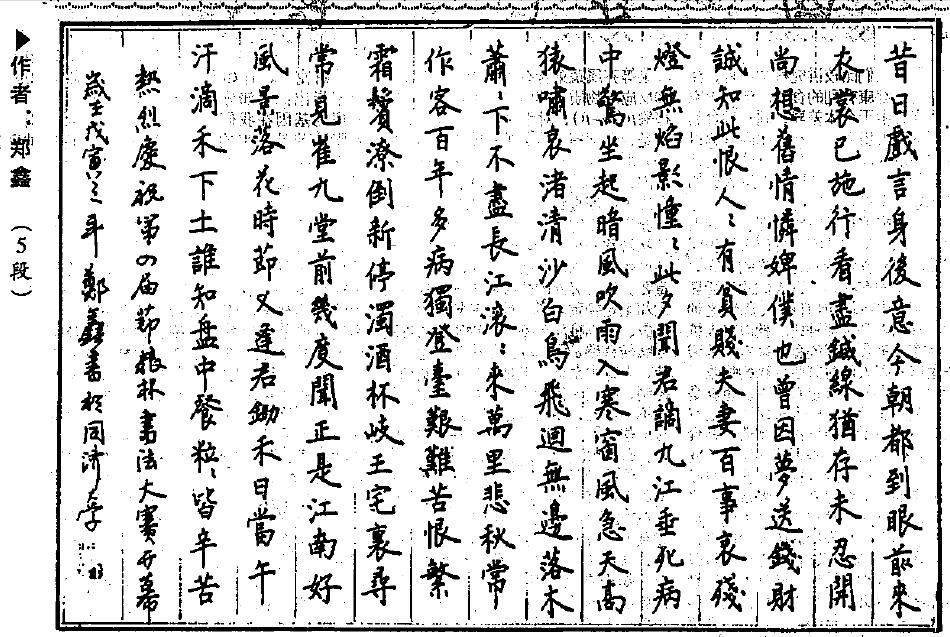 昔日戲言身後意今朝都到眼前來
衣裳已施行看盡鍼線猶存未忍開
尚想舊情憐婢僕也曾因夢送錢財
誠知此恨人〻有貧賤夫妻百事哀殘
燈無焰影憧〻此夕聞君謫九江垂死病
中驚坐起暗風吹雨入寒窗風急天高
猿嘯哀渚清沙白鳥飛迴無邊落木
蕭〻下不盡長江滾〻來萬里悲秋常
作客百年多病獨登臺艱難苦恨繁
霜鬢潦倒新停濁酒杯岐王宅裏尋
常見崔九堂前幾度聞正是江南好
風景落花時節又逢君鋤禾日當午
汗滴禾下土誰知盤中餐粒〻皆辛苦
熱烈慶祝第四届杯書法大賽开幕
歲在戊寅年鄭鑫書於同濟大学
▶作者：郑鑫（5段）